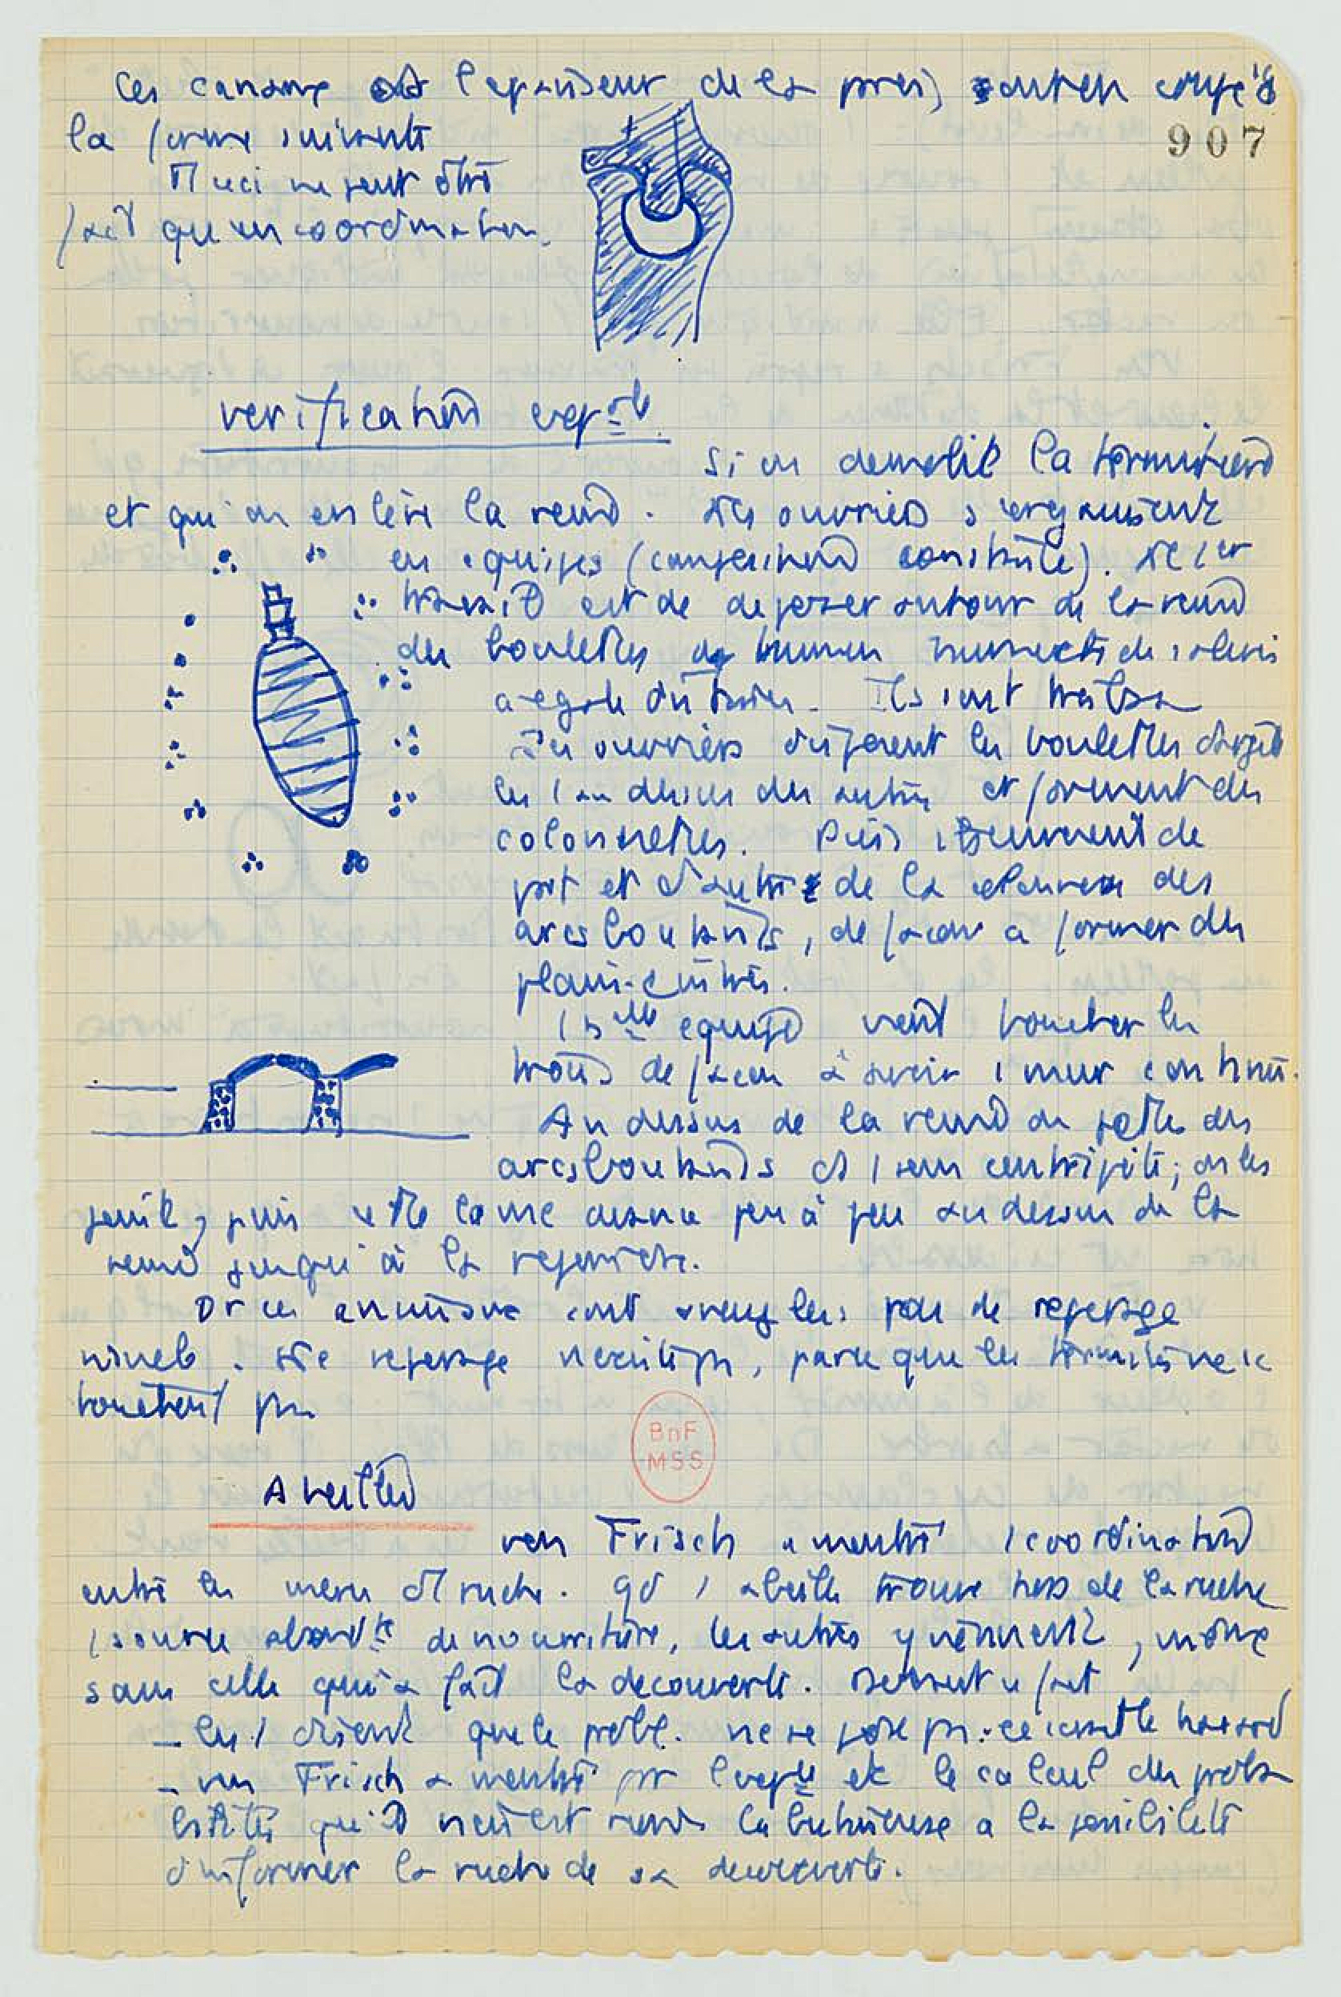 Ces canaux ont l'epaisseur de la paroi, sont en coupe
la forme suivante
907
Ceci ne peut être
fait qu'en coordination.
verification exp^ale
Si on demolit la termitière
et qu'on enlève la reine. Des ouvriers s'organisent
en equipes ( constituée). Le 1er
travail est de deposer autour de la reine
des boulettes de humectés de salive
a egale distance. Ils sont
Les ouvriers deposent les boulettes
les 1 au dessus des autres et forment des
colonnettes. Puis construisent de
part et d'autre de la des
arcsboutants, de facon a former des
pleins-cintres.
1 equipe vient boucher les
trous de facon à avoir 1 mur continu.
Au dessus de la reine on jette des
arcsboutants ds 1 sens centripète, on les
puis cette lame avance peu à peu au dessus de la
reine jusqu'à la rejoindre.
Or ces animaux sont aveugles: pas de reperage
visuel. De reperage , parce que les termites ne se
touchent pas
BnF
MSS
Abeilles
von Frisch a montré 1 coordination
entre les mem d'1 ruche. Qd 1 abeille trouve hors de la ruche
1 source abond^te de nourriture, les autres y viennent, même
sans celle qui a fait la decouverte. Devant ce fait
- les 1 disent que le probl. ne se pose pas: ce serait le hasard
- von Frisch a montré par l'exp^ce et le calcul des proba
bilités qu'il n'en est rien. La butineuse a la possibilité
d'informer la ruche de sa decouverte.